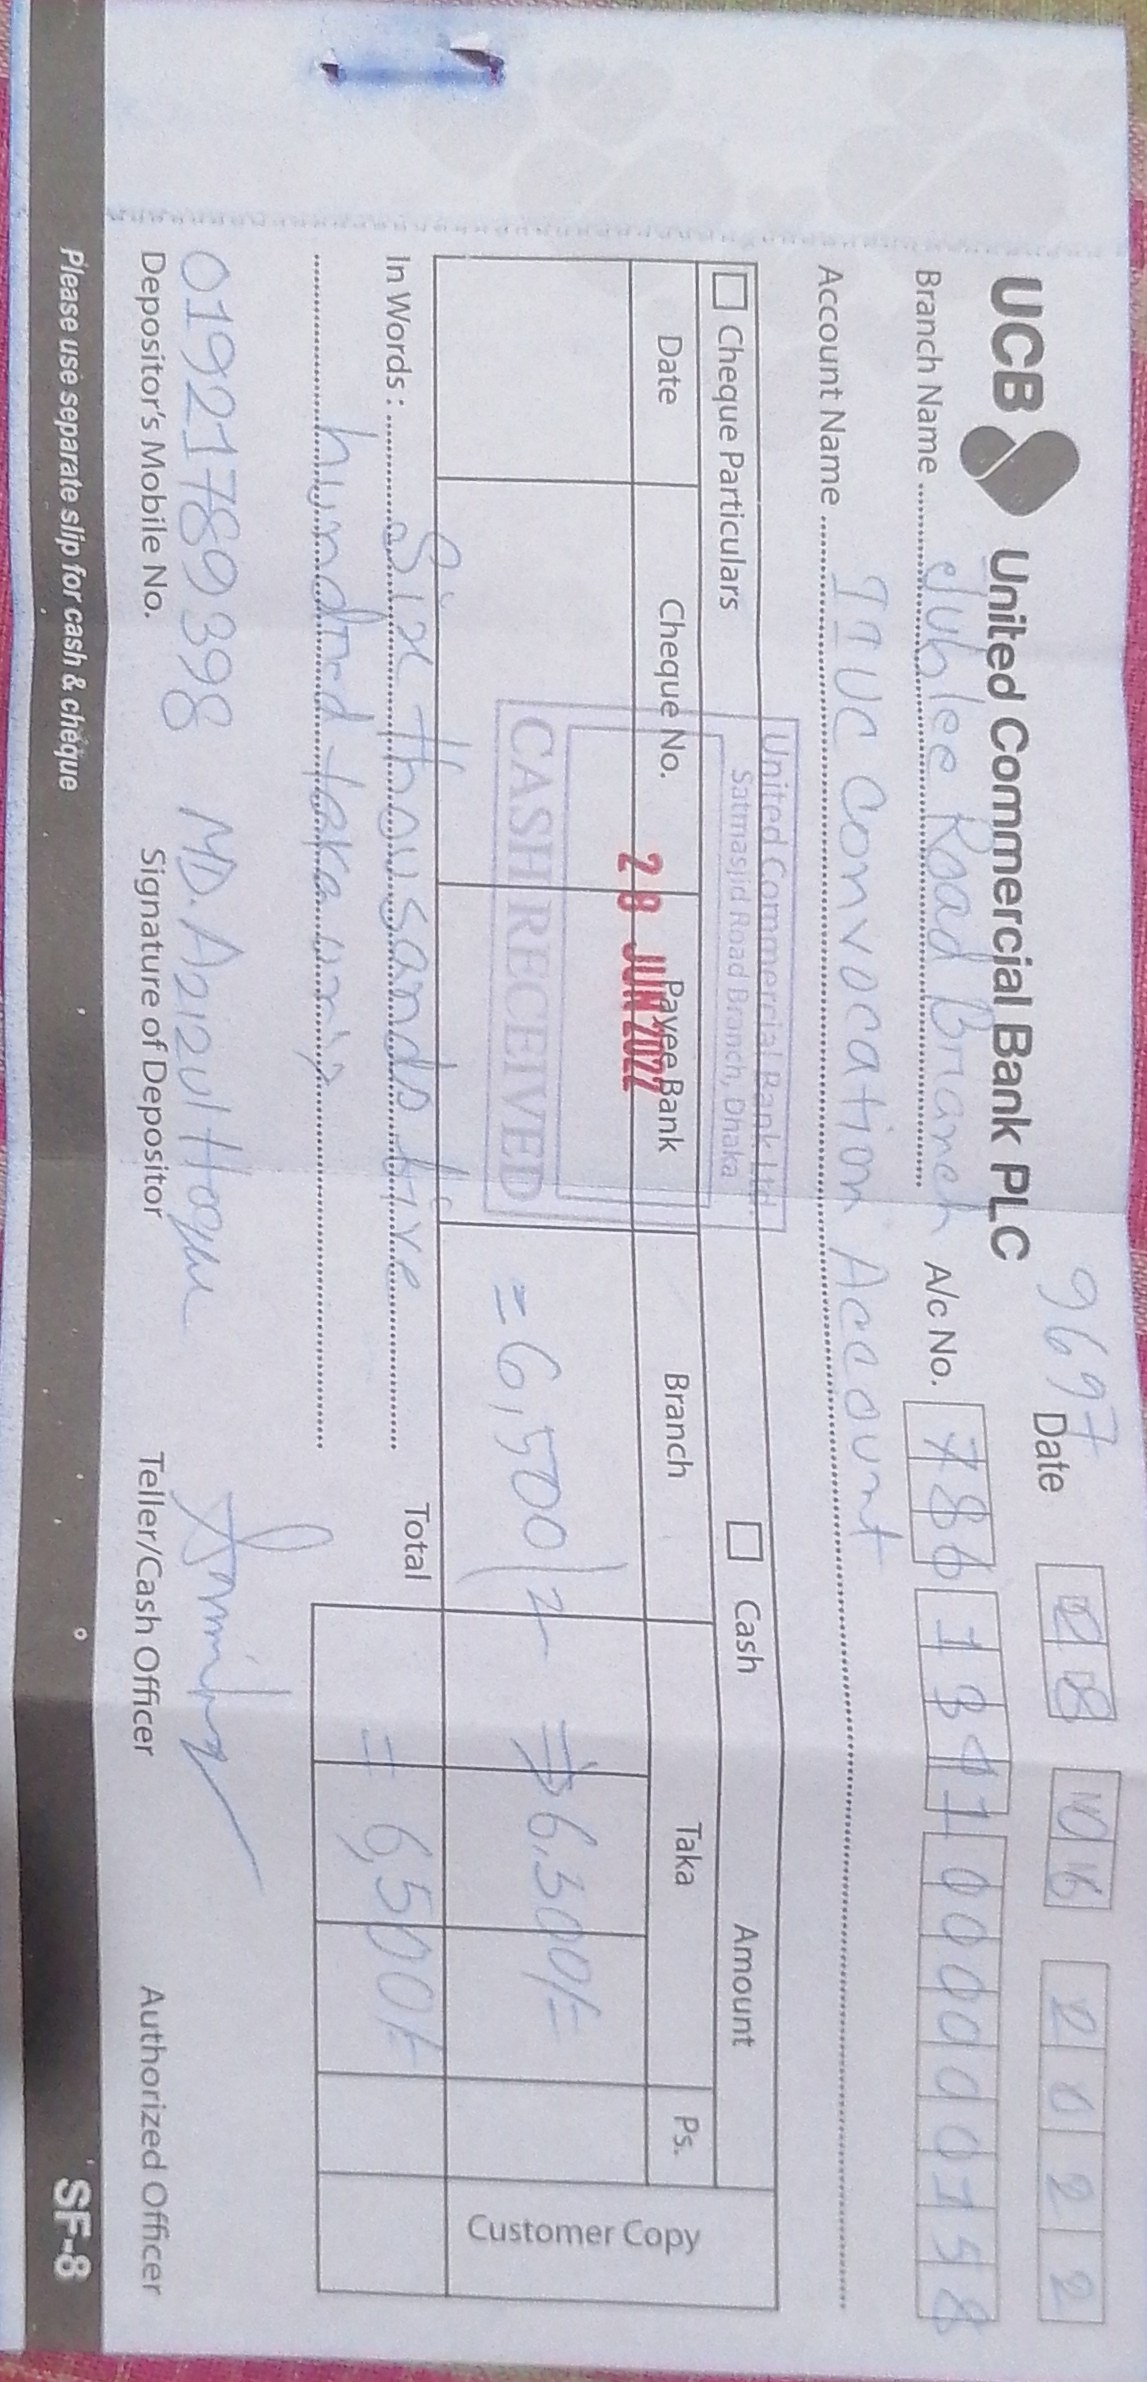 9697
UCB United Commercial Bank PLC
Date 28 06 2022
Branch Name Jublee Road Branch A/c No.
Account Name IIUC Convocation Account
Cheque Particulars Cash Amount
Date Cheque No. Payee Bank Branch Taka Ps.
United Commercial Bank Ltd.
Satmasjid Road Branch, Dhaka
28 JUN 2022
CASH RECEIVED
= 6,500/- 
6,500/=
Customer Copy
In Words : Six thousands five Total = 6,500/-
hundred taka only
01921789398 MD. Azizul Hoque
Depositor's Mobile No. Signature of Depositor Teller/Cash Officer Authorized Officer
Please use separate slip for cash & cheque SF-8